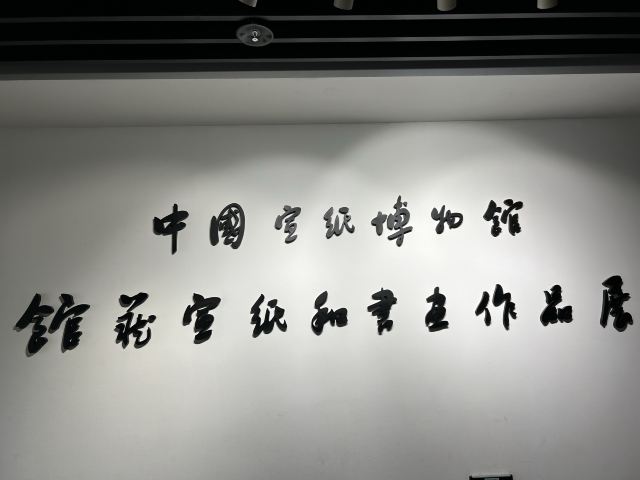 中國宣紙博物館
館藏宣紙和書画作品展